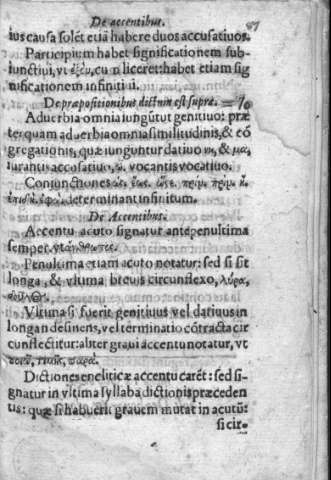 De accentibus. 87
ius causa solẽt etiã habere duos accusatiuos.
Participium habet significationem sub-
iunctiui, vt ἐξὸν, cũ liceret: habet etiam sig
nificationem infinitiui.
De præpositionibus dictum est supra. = 70
Aduerbia omnia iungũtur genitiuo: præ
ter quam aduerbia omnia similitudinis, & cõ
gregationis, quæ iunguntur datiuo & μα,
iurantis accusatiuo, ὦ. vocantis vocatiuo.
Coniunctiones ὡς. ἕως. ὥςε. πρὶν. πρὶν. ἢ.
determinant infinitum.
De Accentibus.
Accentu acuto signatur antepenultima
semper,
Penultima etiam acuto notatur: sed si sit
longa, & vltima breuis circunflexo, λύρα,
Vltima si fuerit genitiuus vel datiuus in
longan desinens, vel terminatio cõtracta cir
cunflectitur: aliter graui accentu notatur, vt
παρὰ.
Dictiones encliticæ accentu carẽt: sed si-
gnatur in vltima syllaba dictionis præceden
tis: quæ si habuerit grauem mutat in acutũ:
si cir-